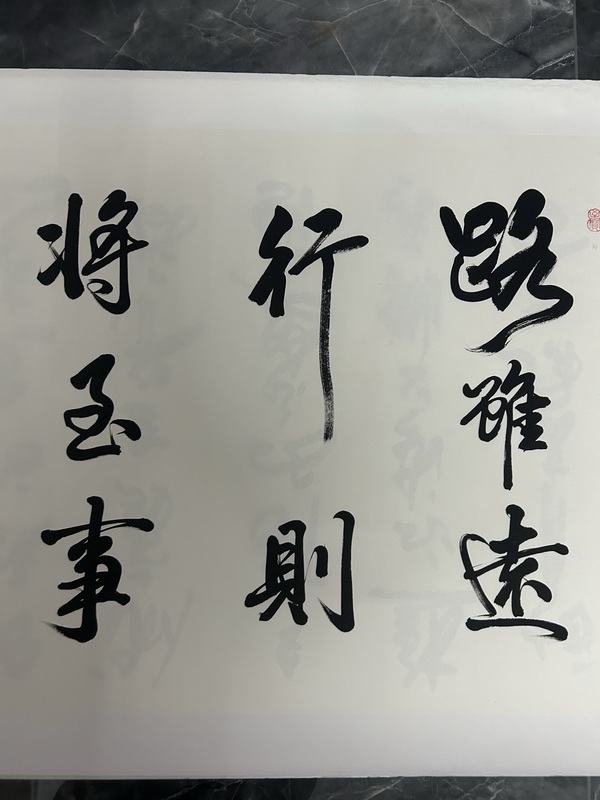 路雖遠
行則
將至事